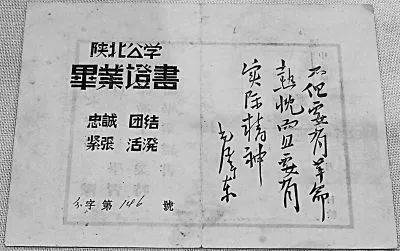 陕北公学
畢業證書
忠誠 团结
紧張 活潑
字第 146 號
不但要有革命
热忱而且要有
实际精神
毛澤东